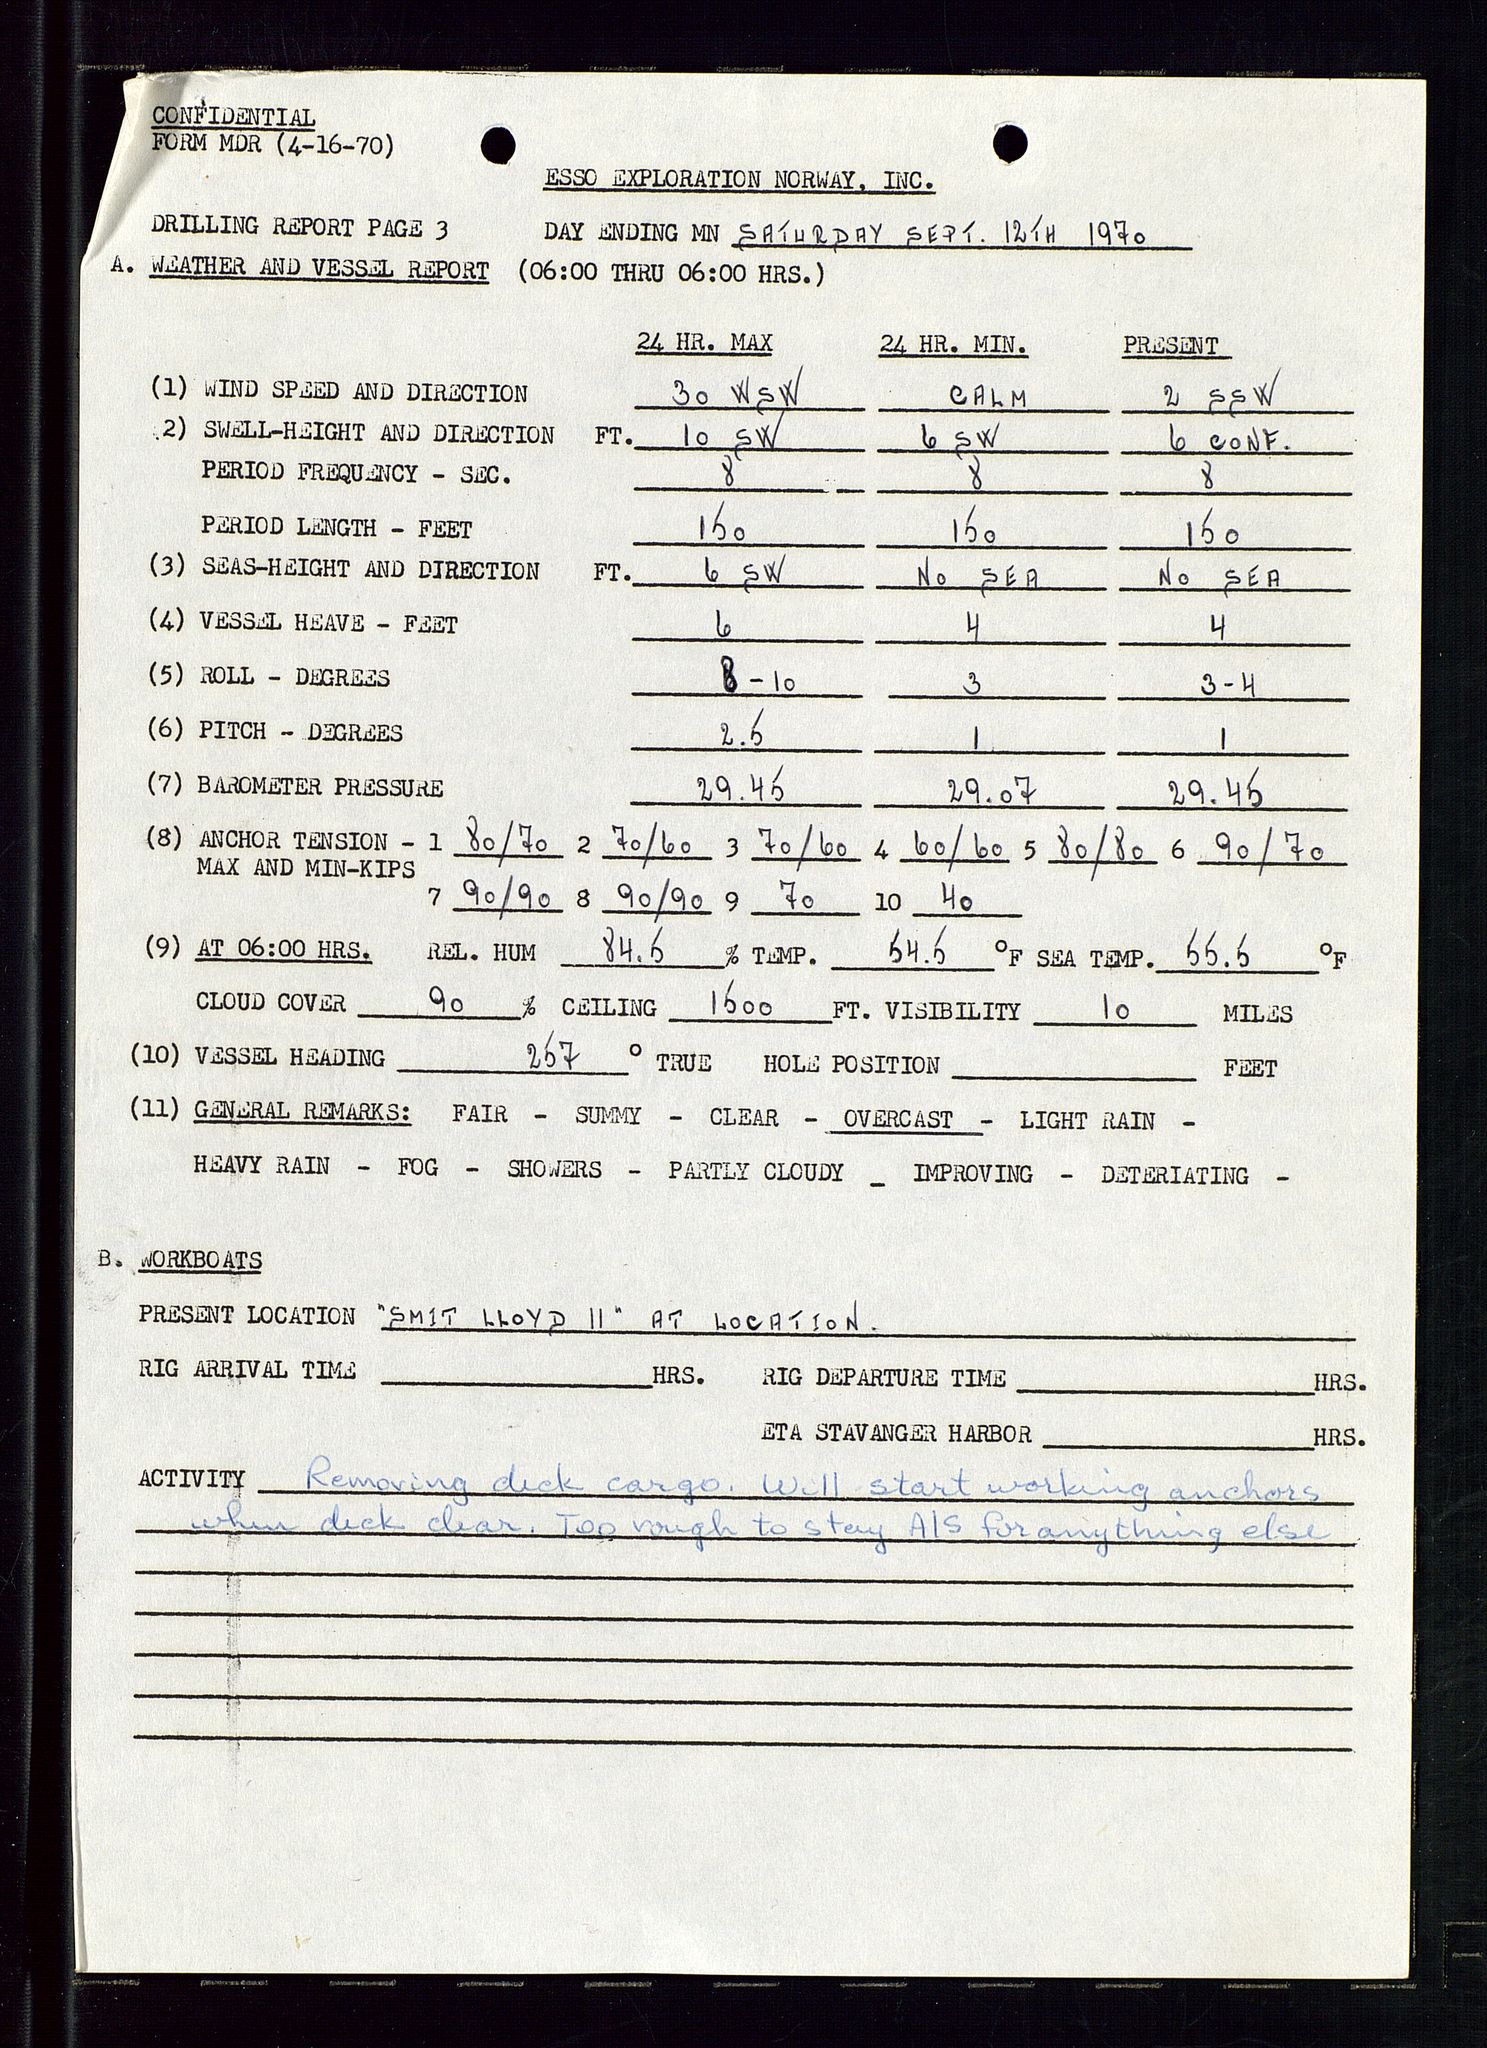 CONFIDENTIAL
FORM MDR (4-16-70)
ESSO EXPLORATION NORWAY, INC.
DRILLING REPORT PAGE 3 DAY ENDING MN SATURDAY SEPT. 12TH 1970
A. WEATHER AND VESSEL REPORT (06:00 THRU 06:00 HRS.)
24 HR. MAX 24 HR. MIN. PRESENT
(1) WIND SPEED AND DIRECTION 30 WSW CALM 2 SSW
2) SWELL-HEIGHT AND DIRECTION FT. 10 SW 6 SW 6 CONF.
PERIOD FREQUENCY - SEC. 8 8 8
PERIOD LENGTH - FEET 150 150 150
(3) SEAS-HEIGHT AND DIRECTION FT. 6 SW NO SEA NO SEA
(4) VESSEL HEAVE - FEET 6 4 4
(5) ROLL - DEGREES 8-10 3 3-4
(6) PITCH - DEGREES 2.5 1 1
(7) BAROMETER PRESSURE 29.45 29.07 29.45
(8) ANCHOR TENSION - 1 80/70 2 70/60 3 70/60 4 60/60 5 80/80 6 90/70
MAX AND MIN-KIPS
7 90/90 8 90/90 9 70 10 40
(9) AT 06:00 HRS. REL. HUM 84.5 % TEMP. 54.5 °F SEA TEMP. 55.5 °F
CLOUD COVER 90 % CEILING 1500 FT. VISIBILITY 10 MILES
(10) VESSEL HEADING 257 ° TRUE HOLE POSITION FEET
(11) GENERAL REMARKS: FAIR - SUMMY - CLEAR - OVERCAST - LIGHT RAIN -
HEAVY RAIN - FOG - SHOWERS - PARTLY CLOUDY _ IMPROVING - DETERIATING -
B. WORKBOATS
PRESENT LOCATION "SMIT LLOYD 11" AT LOCATION.
RIG ARRIVAL TIME HRS. RIG DEPARTURE TIME HRS.
ETA STAVANGER HARBOR HRS.
ACTIVITY Removing deck cargo. Will start working anchors
when deck clear. Too rough to stay A/S for anything else